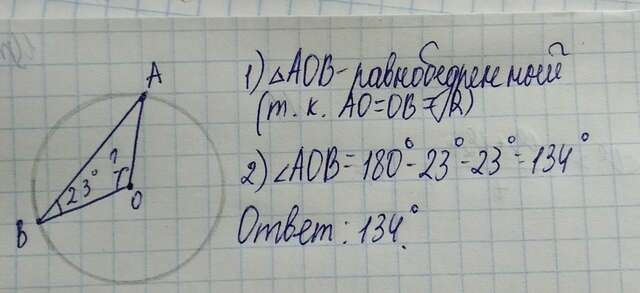 A
1) △AOB - равнобедренный
(т. к. AO=OB=R)
?
23°
O
B
2) ∠AOB = 180° - 23° - 23° = 134°
Ответ: 134°.